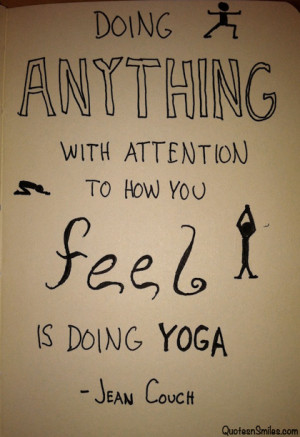 DOING
ANYTHING
WITH ATTENTION
TO HOW YOU
feel
IS DOING YOGA
- JEAN COUCH
QuoteenSmiles.com